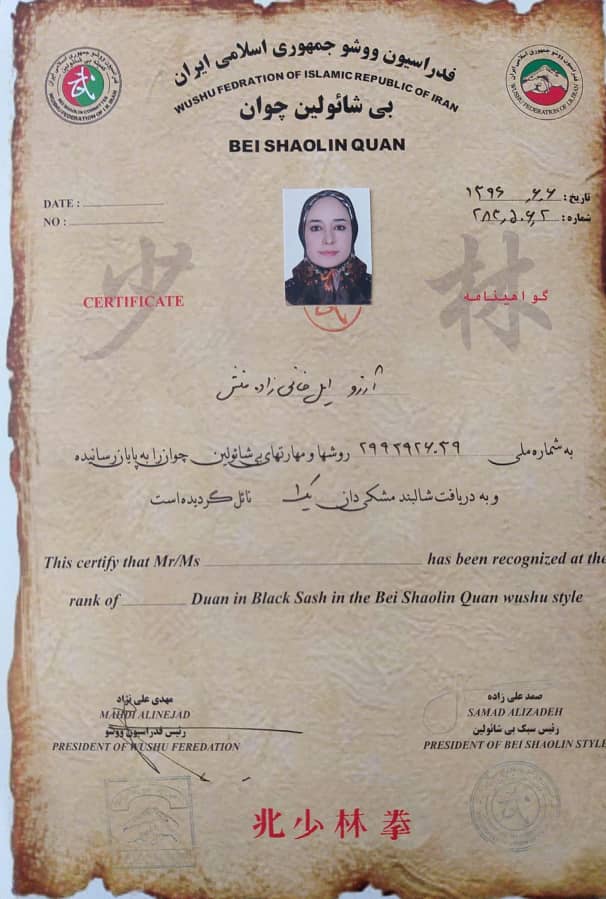 فدراسیون ووشو جمهوری اسلامی ایران
WUSHU FEDRATION OF ISLAMIC REPUBLIC OF IRAN
بی شائولین چوان
BEI SHAOLIN QUAN
DATE :
NO :
تاریخ : ۱۳۹۶٫۶٫۶
شماره :
少林
CERTIFICATE
گواهینامه
آرزو ایل خانی زاده منش
به شماره ملی ۲۹۹۲۹۲۶۰۳۹ روشها و مهارتهای بی شائولین چوان را به پایان رسانیده
و به دریافت شالبند مشکی دان یک نائل گردیده است
This certify that Mr/Ms has been recognized at the
rank of Duan in Black Sash in the Bei Shaolin Quan wushu style
مهدی علی نژاد
MAHDI ALINEJAD
رئیس فدراسیون ووشو
PRESIDENT OF WUSHU FEREDATION
صمد علی زاده
SAMAD ALIZADEH
رئیس سبک بی شائولین
PRESIDENT OF BEI SHAOLIN STYLE
北少林拳